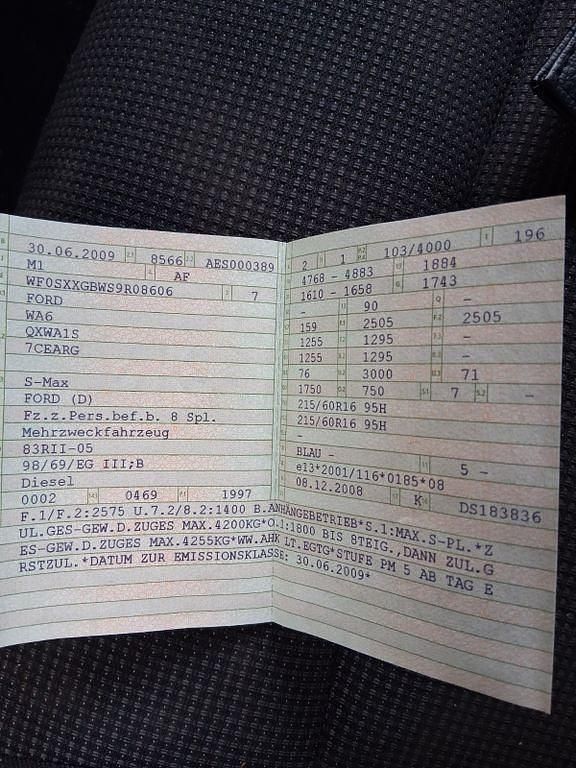 30.06.2009 8566 AES000389
M1 AF
WF0SXXGBWS9R08606 7
FORD
WA6
QXWA1S
7CEARG
S-Max
FORD (D)
Fz.z.Pers.bef.b. 8 Spl.
Mehrzweckfahrzeug
83RII-05
98/69/EG III;B
Diesel
0002 0469 1997
2 1 103/4000 196
4768 - 4883 1884
1610 - 1658 1743
- 90 -
159 2505 2505
1255 1295 -
1255 1295 -
76 3000 71
1750 750 7 -
215/60R16 95H
215/60R16 95H
-
BLAU - 5 -
e13*2001/116*0185*08
08.12.2008 K DS183836
F.1/F.2:2575 U.7.2/8.2:1400 B.ANHÄNGEBETRIEB*S.1:MAX.S-PL.*Z
UL.GES-GEW.D.ZUGES MAX.4200KG*O.1:1800 BIS 8%STEIG.,DANN ZUL.G
ES-GEW.D.ZUGES MAX.4255KG*WW.AHK LT.EGTG*STUFE PM 5 AB TAG E
RSTZUL.*DATUM ZUR EMISSIONSKLASSE: 30.06.2009*